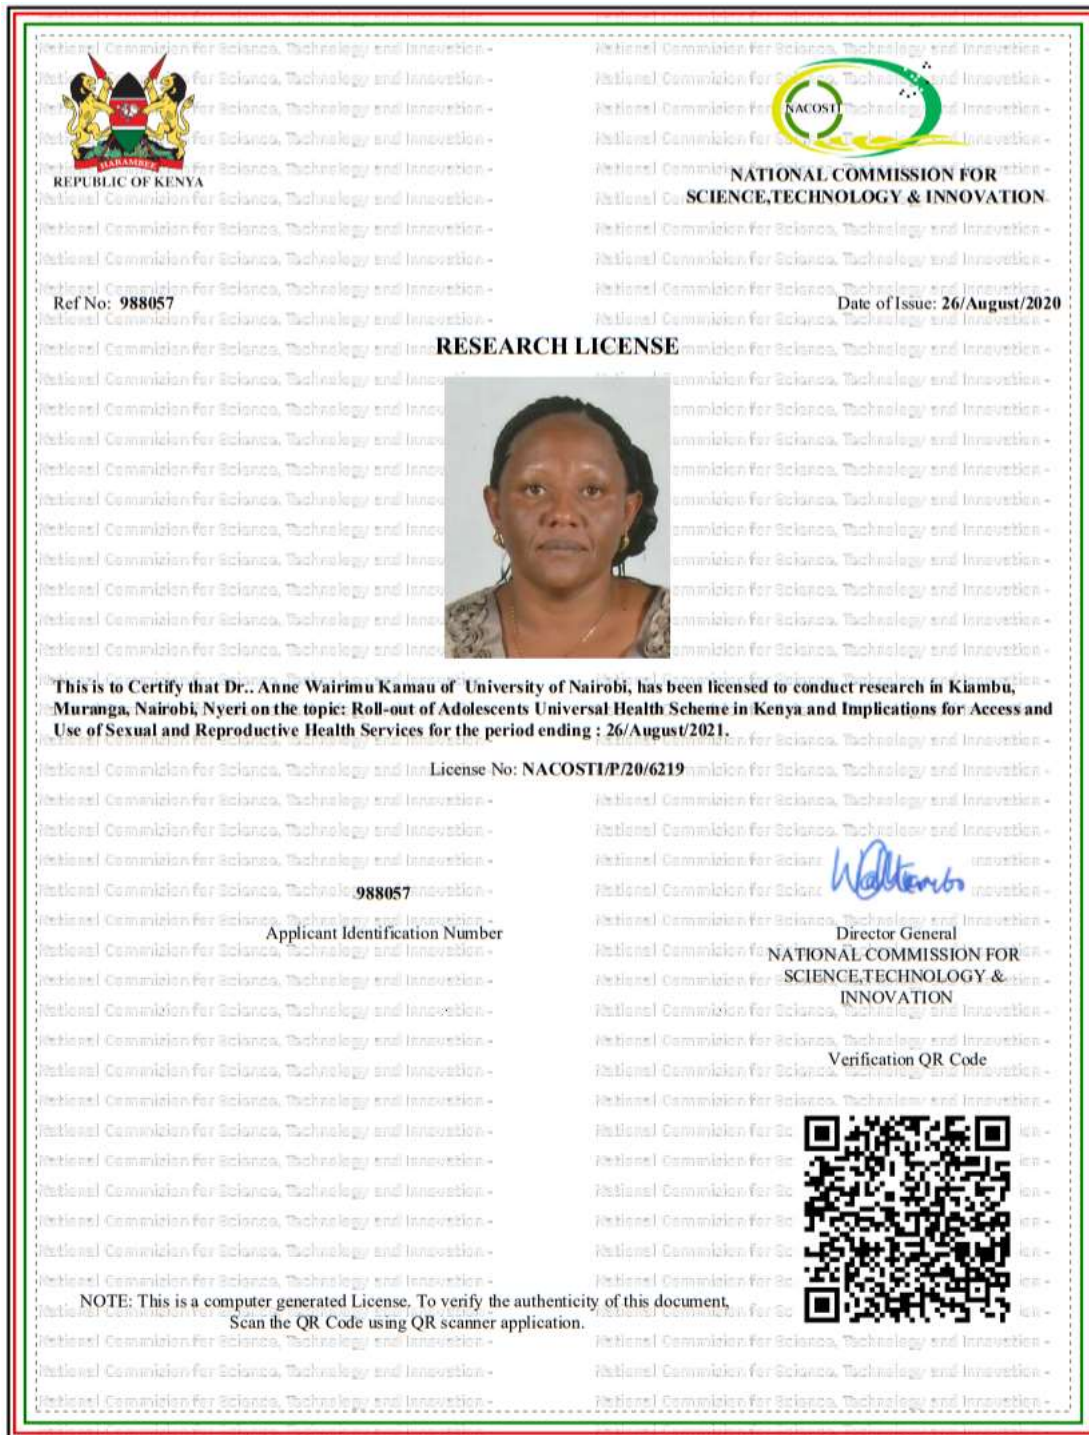 HARAMBEE
REPUBLIC OF KENYA
NACOSTI
NATIONAL COMMISSION FOR
SCIENCE,TECHNOLOGY & INNOVATION
Ref No: 988057
Date of Issue: 26/August/2020
RESEARCH LICENSE
This is to Certify that Dr.. Anne Wairimu Kamau of University of Nairobi, has been licensed to conduct research in Kiambu,
Muranga, Nairobi, Nyeri on the topic: Roll-out of Adolescents Universal Health Scheme in Kenya and Implications for Access and
Use of Sexual and Reproductive Health Services for the period ending : 26/August/2021.
License No: NACOSTI/P/20/6219
988057
Applicant Identification Number
Director General
NATIONAL COMMISSION FOR
SCIENCE,TECHNOLOGY &
INNOVATION
Verification QR Code
NOTE: This is a computer generated License. To verify the authenticity of this document,
Scan the QR Code using QR scanner application.